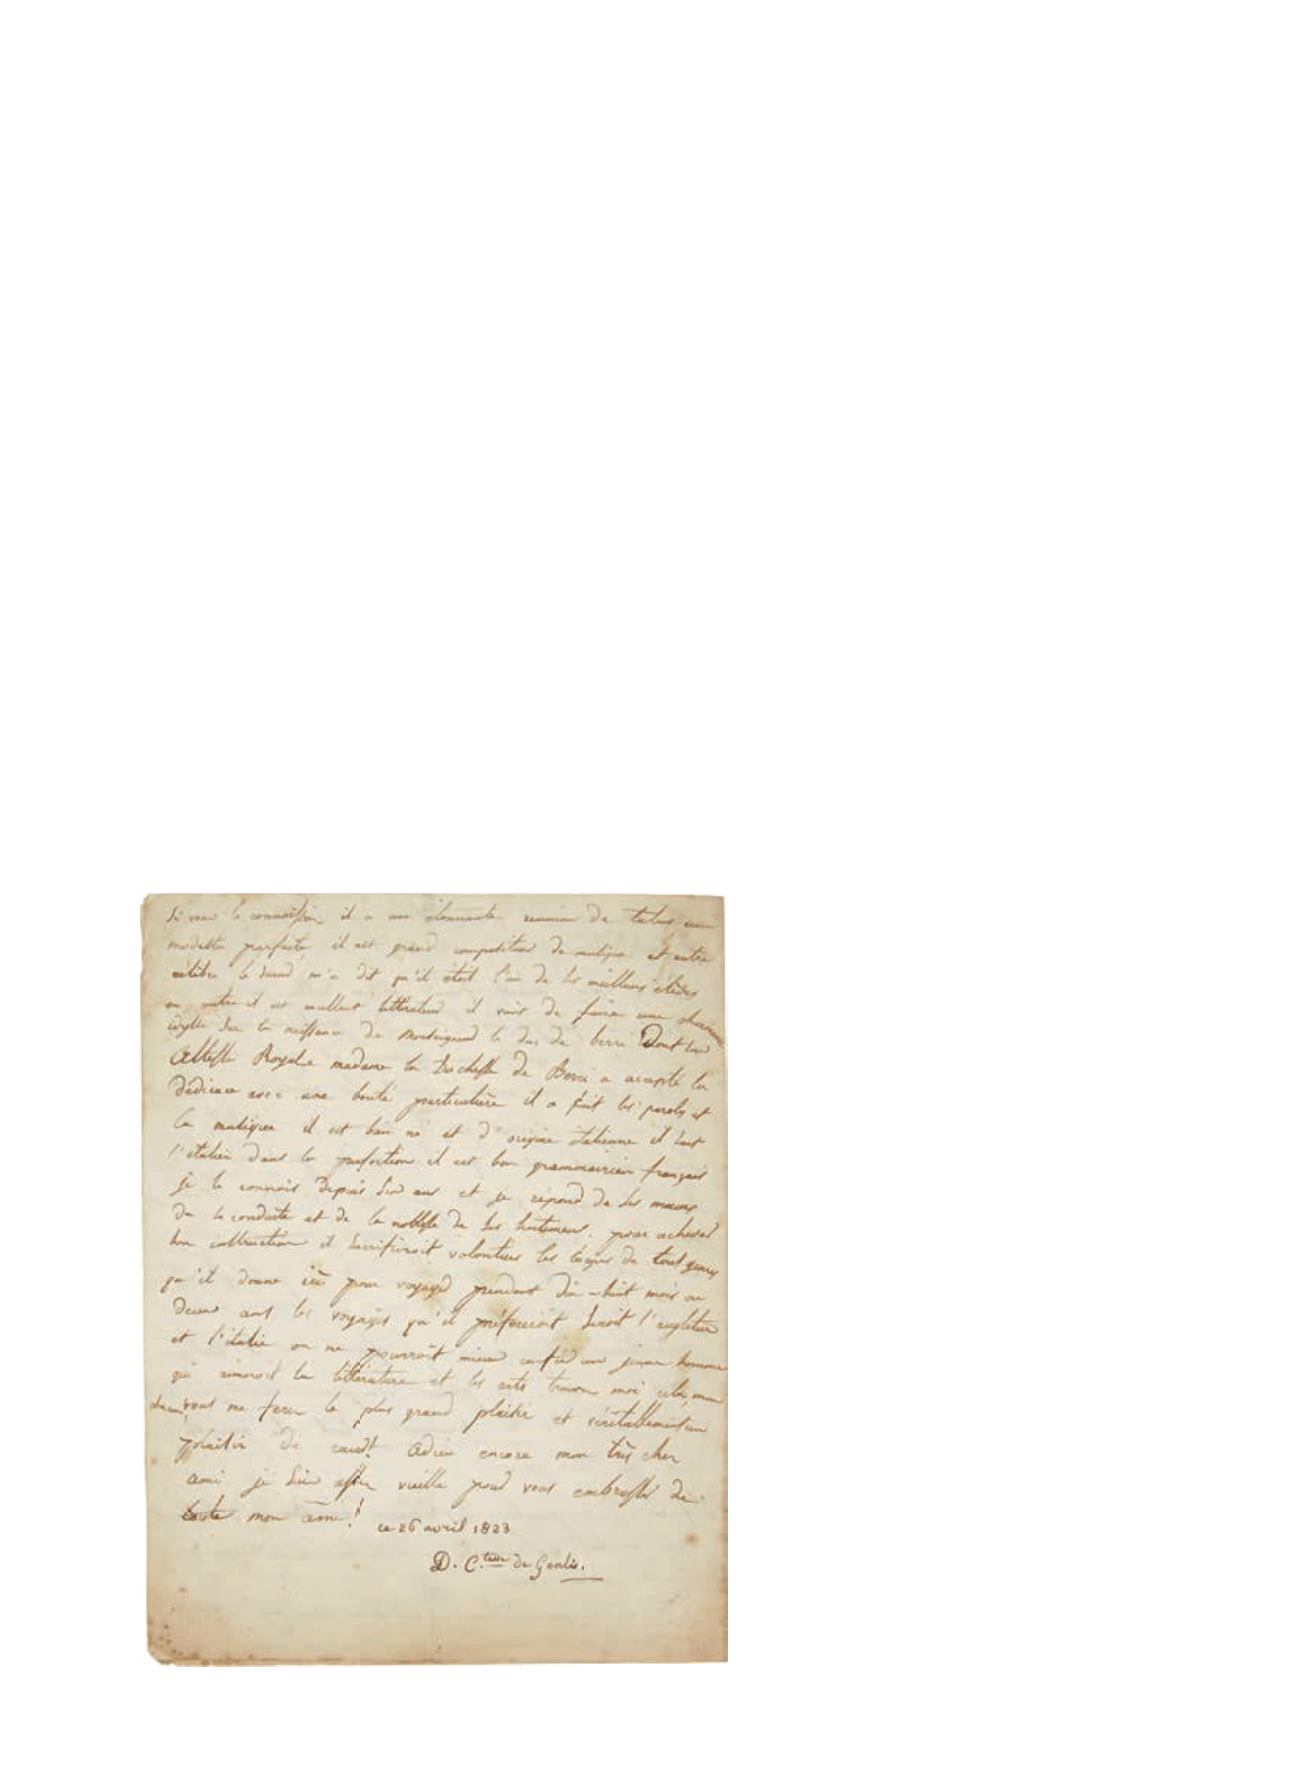 si vous le connoissiez il a une étonnante reunion de talens une
modestie parfaite, il est grand compositeur de musique et notre
célèbre m'a dit qu'il étoit l'un de ses meilleurs élèves
en outre il est excellent littérateur il vient de faire une charmante
idylle sur la naissance de Monseigneur le duc de dont son
Altesse Royale madame la Duchesse de Berri a accepté la
dédicace avec une bonté particulière il a fait les paroles et
la musique il est bien né et d'origine italienne il sait
l'italien dans la perfection il est bon grammairien français
je le connois depuis ans et je répond de ses mœurs
de sa conduite et de la noblesse de ses sentimens. pour achever
son instruction il sacrifieroit volontiers les leçons de tout genre
qu'il donne ici pour voyager pendant dix-huit mois ou
deux ans les voyages qu'il préfereroit seroit l'angleterre
et l'italie on ne pourroit mieux confier un jeune homme
qui aimeroit la littérature et les arts trouvez moi cela, mon
cher, vous me ferez le plus grand plaisir et véritablement un
plaisir de cœur! adieu encore mon très cher
ami je suis assez vieille pour vous embrasser de
toute mon âme!
ce 26 avril 1823
D. C.tesse de Genlis.